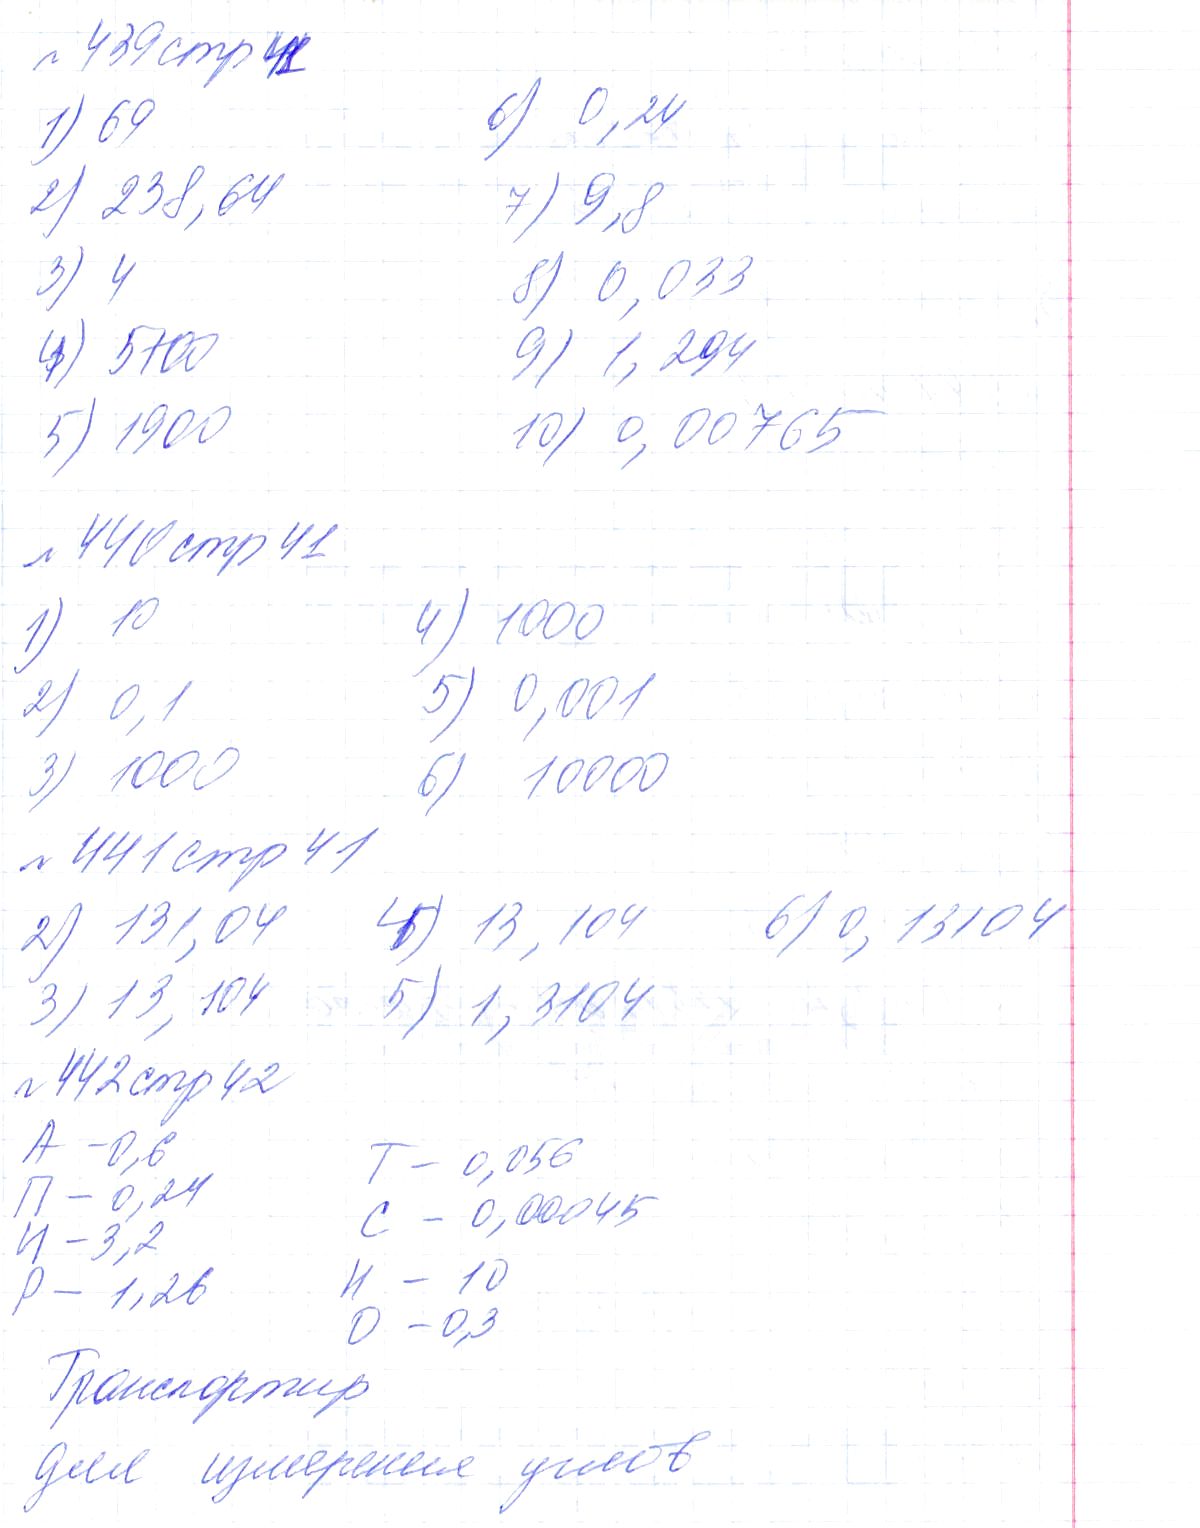 № 439 стр 41
1) 69 6) 0,24
2) 238,64 7) 9,8
3) 4 8) 0,033
4) 5700 9) 1,294
5) 1900 10) 0,00765
№ 440 стр 41
1) 10 4) 1000
2) 0,1 5) 0,001
3) 1000 6) 10000
№ 441 стр 41
2) 131,04 4) 13,104 6) 0,13104
3) 13,104 5) 1,3104
№ 442 стр 42
А - 0,6 Т - 0,056
П - 0,24 С - 0,00045
И - 3,2 Н - 10
Р - 1,26 О - 0,3
Транспортир
для измерения углов